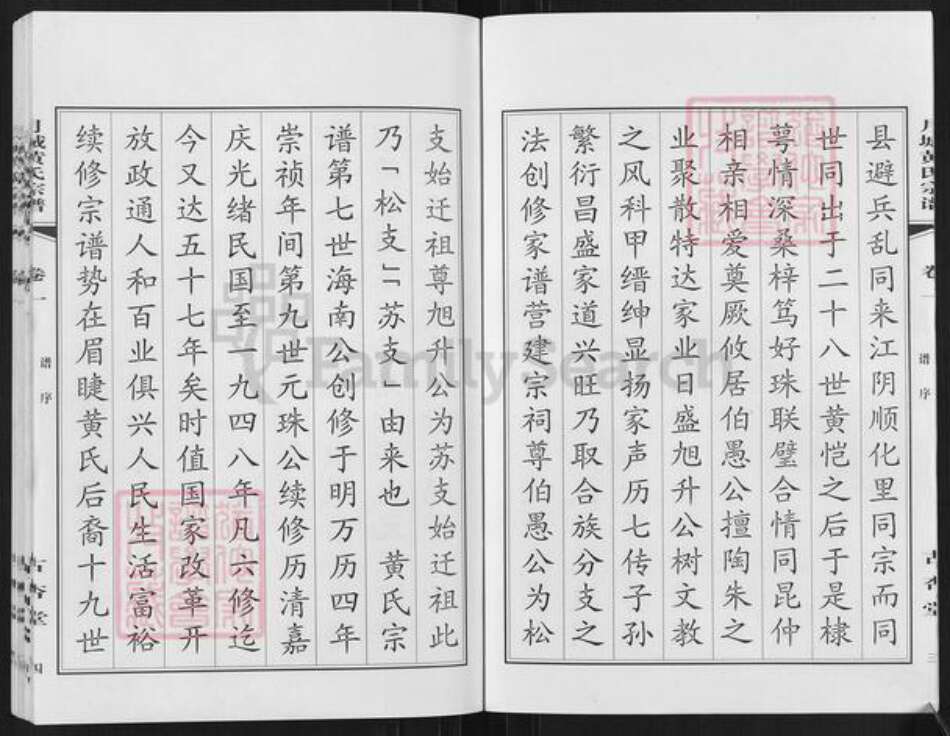 县避兵乱同来江阴顺化里同宗而同
世同出于二十八世黄恺之后于是棣
萼情深桑梓笃好珠联璧合情同昆仲
相亲相爱奠厥攸居伯愚公擅陶朱之
业聚散特达家业日盛旭升公树文教
之风科甲缙绅显扬家声历七传子孙
繁衍昌盛家道兴旺乃取合族分支之
法创修家谱营建宗祠尊伯愚公为松
月城黄氏宗谱 卷一 谱序 古杏堂 三
支始迁祖尊旭升公为苏支始迁祖此
乃「松支」「苏支」由来也 黄氏宗
谱第七世海南公创修于明万历四年
崇祯年间第九世元珠公续修历清嘉
庆光绪民国至一九四八年凡六修迄
今又达五十七年矣时值国家改革开
放政通人和百业俱兴人民生活富裕
续修宗谱势在眉睫黄氏后裔十九世
月城黄氏宗谱 卷一 谱序 古杏堂 四
FamilySearch